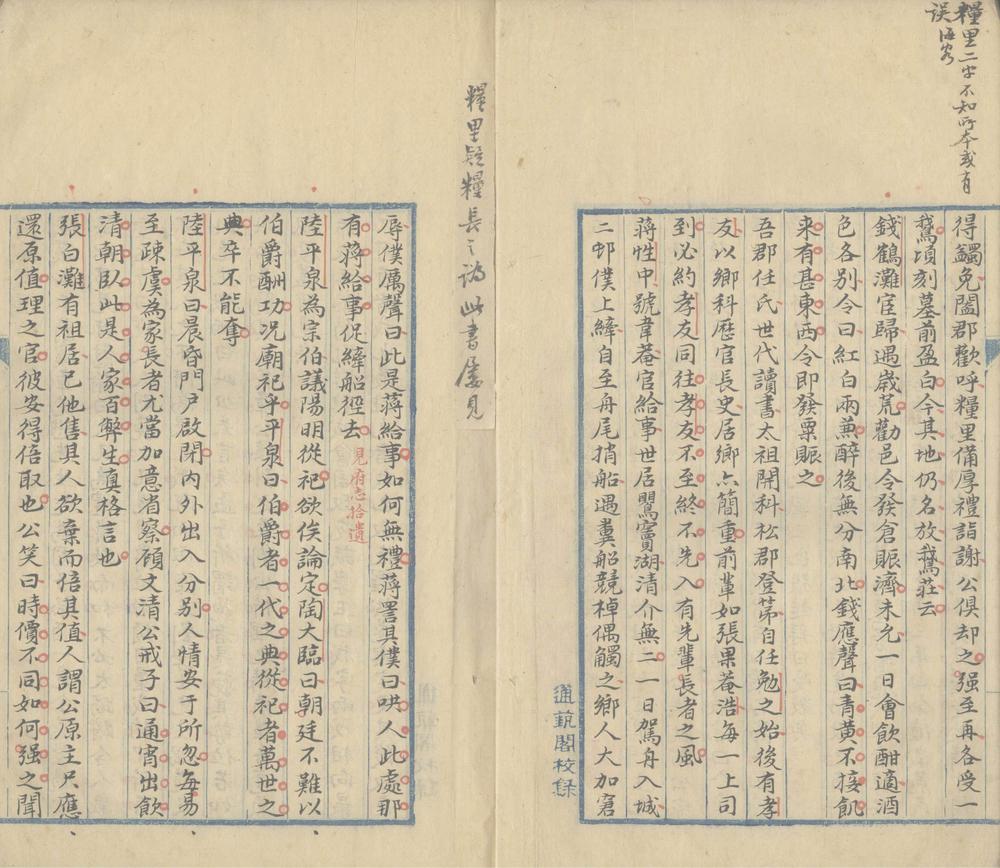 糧里二字不知所本或有
誤
得蠲免闔郡歡呼糧里備厚禮詣謝公俱却之强至再各受一
鵞頃刻墓前盈白今其地仍名放鵞莊云
錢鶴灘宦歸遇歲荒勸邑令發倉賑濟未允一日會飲酣適酒
色各别令曰紅白兩蒹醉後無分南北錢應聲曰青黄不接飢
來有甚東西令即發粟賑之
吾郡任氏世代讀書太祖開科松郡登第自任勉之始後有孝
友以鄉科歷官長史居鄉亦簡重前輩如張果菴浩每一上司
到必約孝友同往孝友不至終不先入有先輩長者之風
蔣性中號葦菴官給事世居鶯竇湖清介無二一日駕舟入城
二邨僕上縴自至舟尾捎船遇糞船競棹偶觸之鄉人大加窘
通藝閣校錄
糧里疑糧長之譌此書屢見
辱僕厲聲曰此是蔣給事如何無禮蔣詈其僕曰哄人此處那
有蔣給事促縴船徑去
見府志拾遺
陸平泉為宗伯議陽明從祀欲俟論定陶大臨曰朝廷不難以
伯爵酬功况廟祀乎平泉曰伯爵者一代之典從祀者萬世之
典卒不能奪
陸平泉曰晨昏門户啟閉内外出入分别人情安于所忽每易
至疎虞為家長者尤當加意省察顧文清公戒子曰通宵出飲
清朝臥此是人家百弊生真格言也
張白灘有祖居已他售其人欲棄而倍其值人謂公原主只應
還原值理之官彼安得倍取也公笑曰時價不同如何强之聞